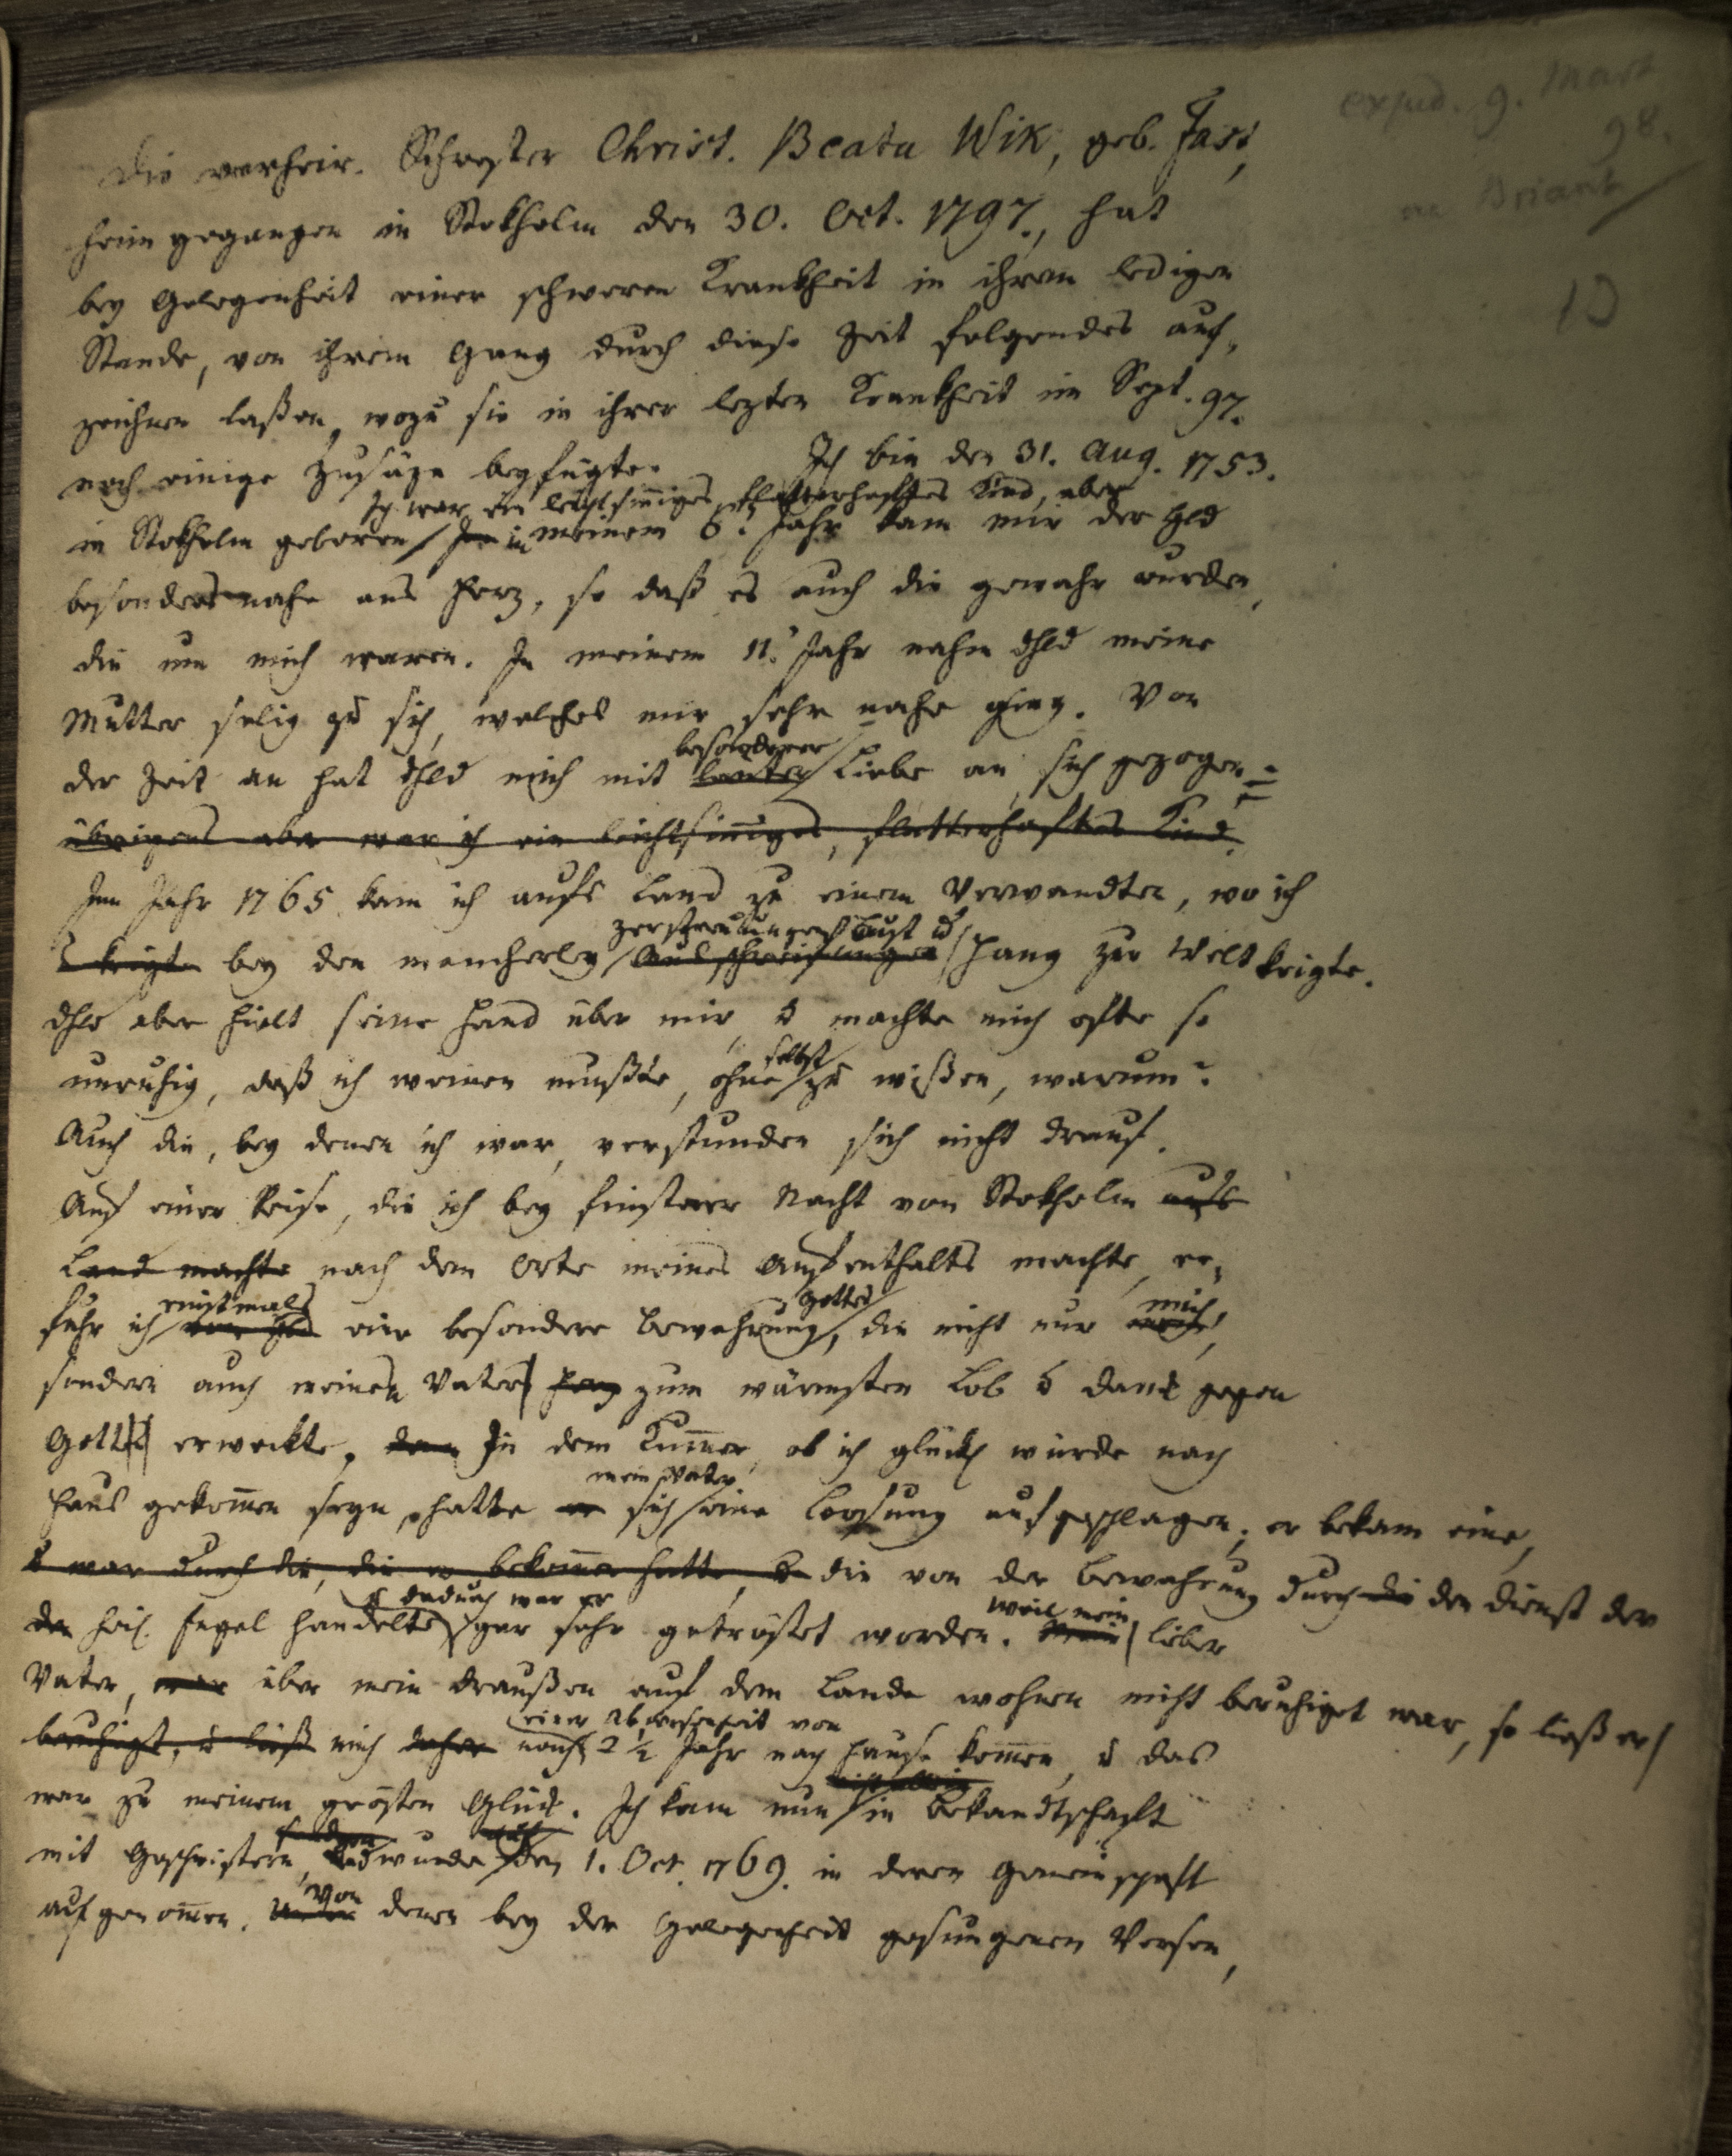 exped. 9. Mart
98.
an Briant
10
Die verheir. Schwester Christ. Beata Wik, geb. Fast,
heimgegangen in Stokholm den 30. Oct. 1797., hat
bey Gelegenheit einer schweren Krankheit in ihrem ledigen
Stande, von ihrem Gang durch diese Zeit folgendes auf-
zeichnen laßen, wozu sie in ihrer lezten Krankheit im Sept. 97.
noch einige Zusäze beyfügte. Ich bin den 31. Aug. 1753.
Ich war ein leichtsiniges, flatterhaftes Kind, aber
in Stokholm geboren in meinem 6. Jahr kam mir der Hld
besonders nahe ans Herz, so daß es auch die gewahr wurden,
die um mich waren. In meinem 11. Jahr nahm dHld meine
Mutter selig zu sich, welches mir sehr nahe ging. Von
besonderer
der Zeit an hat dHld mich mit lauter Liebe an sich gezogen
übrigens aber war ich ein leichtsiniges, flatterhaftes Kind.
Im Jahr 1765 kam ich aufs Land zu einem Verwandten, wo ich
Zerstreuungen Lust u
u krigte bey den mancherley Ausschweifungen Hang zur Welt krigte.
dHld aber hielt seine Hand über mir u machte mich ofte so
selbst
unruhig, daß ich weinen mußte, ohne zu wißen, warum?
Auch die, bey denen ich war, verstunden sich nicht drauf.
Auf einer Reise, die ich bey finsterer Nacht von Stokholm aufs
Land machte nach dem Orte meines Aufenthalts machte, er-
einstmals Gottes mich
fuhr ich eine besondere Bewahrung, die nicht nur
sondern auch meinen Vater Herz zum wärmsten Lob u Dank gegen
Gott erweckte. In dem Kumer, ob ich glückl würde nach
mein Vater
Haus gekomen seyn, hatte er sich eine Loosung aufgeschlagen; er bekam eine,
u war durch die, die er bekomen hatte, die von der Bewahrung durch die den Dienst der
u dadurch war er weil mein
den heil. Engel handelte gar sehr getröstet worden. Mein lieber
Vater, war über mein draußen auf dem Lande wohnen nicht beruhiget war, so ließ er
einer Abwesenheit von
beruhigt, u ließ mich daher nach 2 1/2 Jahr nach Hause komen, u das
war zu meinem grösten Glück. Ich kam nun in Bekandtschaft
mit Geschwistern, und wurde den 1. Oct. 1769. in deren Gemeinschaft
Von
aufgenomen. denen bey der Gelegenheit gesungenen Versen,